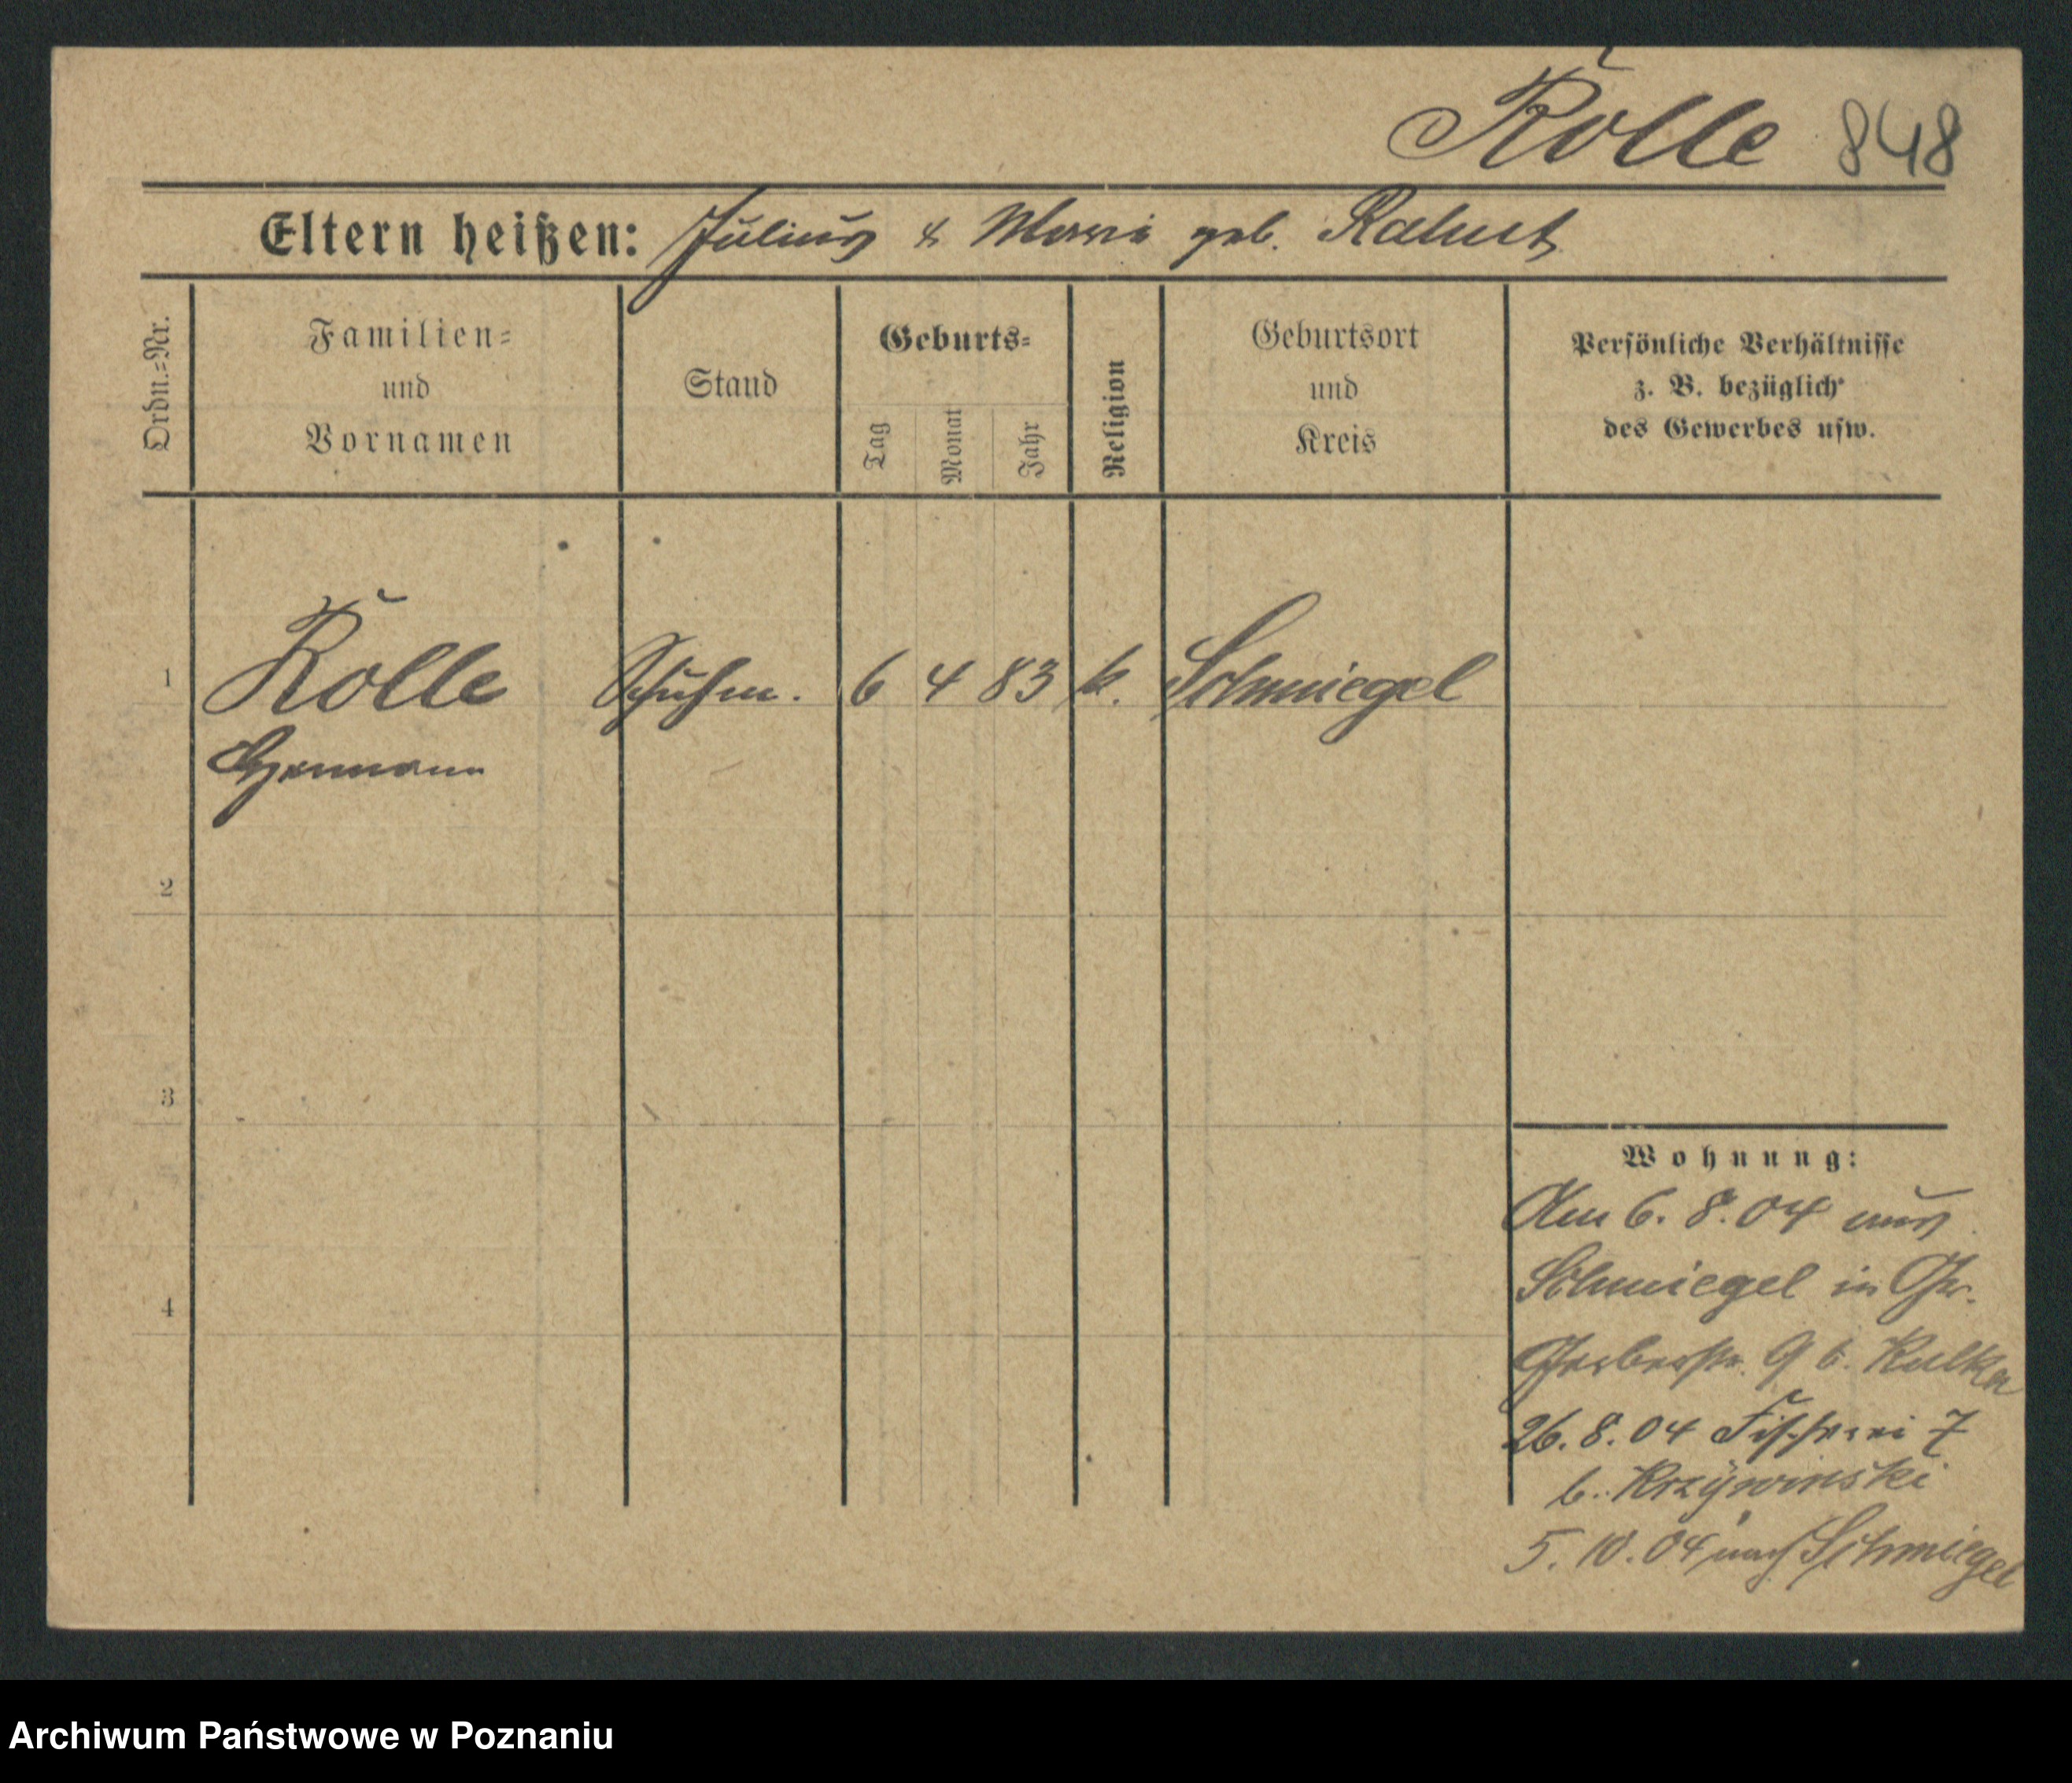 Rolle 848
Eltern heißen: Julius & Marie geb.
Ordn.=Nr.
Familien=
und
Vornamen
Stand
Geburts=
Tag
Monat
Jahr
Religion
Geburtsort
und
Kreis
Persönliche Verhältnisse
z. B. bezüglich
des Gewerbes usw.
1 Rolle Schuhm. 6 4 83 k. Schmiegel
Hermann
2
3
4
Wohnung:
Am 6. 8. 04 aus
Schmiegel in Gr.
Gerberstr. 9 b. Kulka
26. 8. 04 Fischerei 7
b. Krzywinski
5. 10. 04 nach Schmiegel
Archiwum Państwowe w Poznaniu